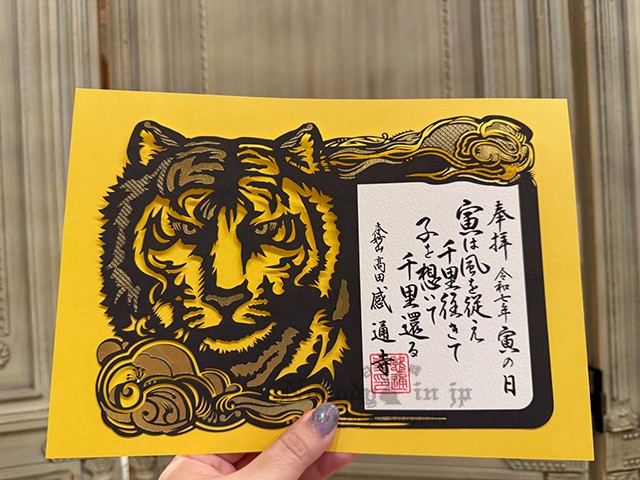 奉拝 令和七年 寅の日
寅は風を従え
千里往きて
子を想いて
千里還る
高田 感通寺
in jp